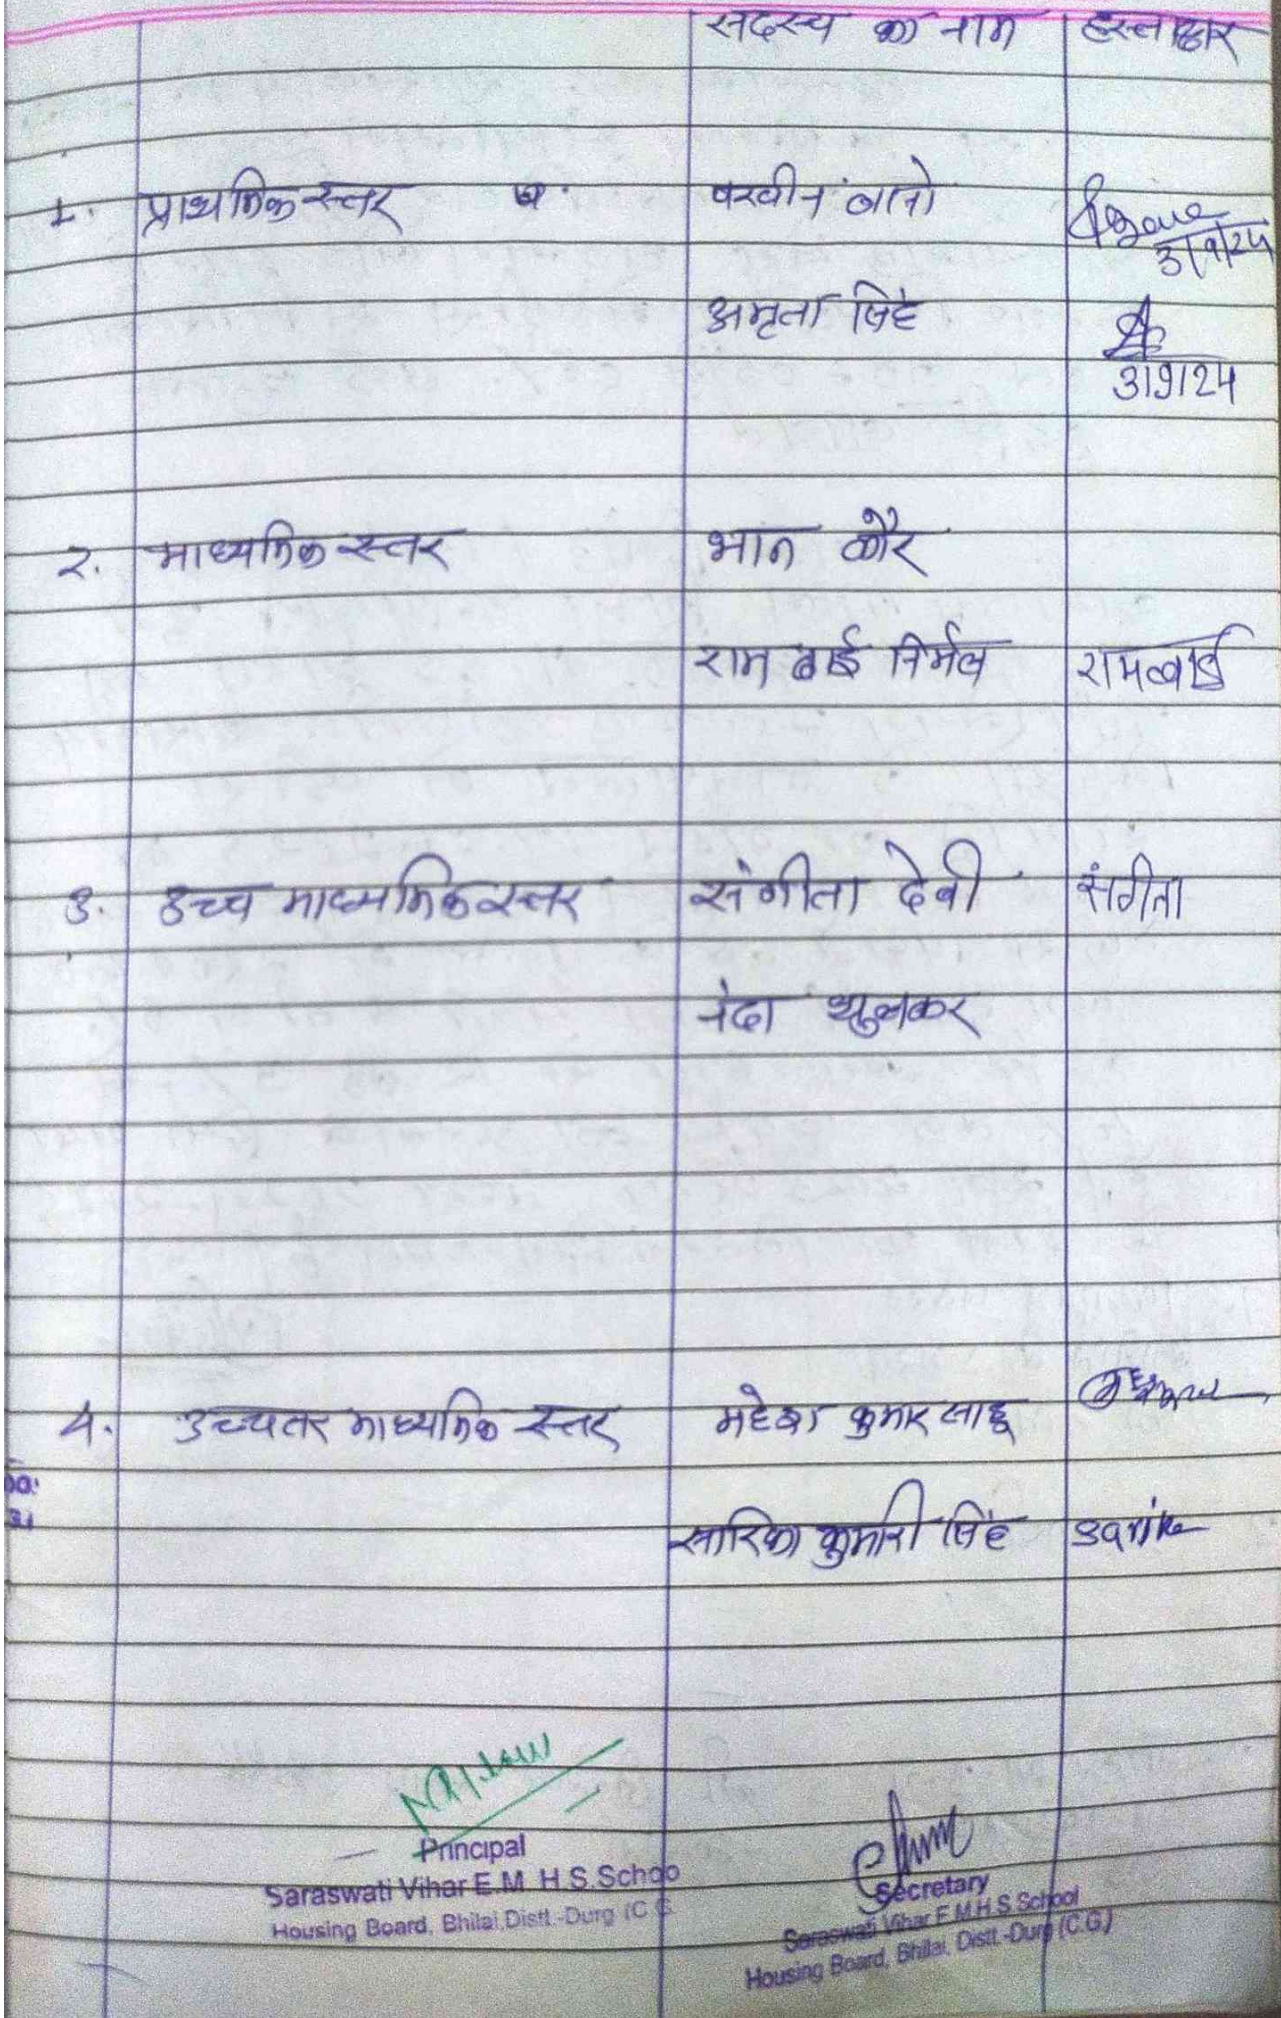 सदस्य का नाम हस्ताक्षर
1. प्राथमिक स्तर परवीन बानो
3/9/24
अमृता सिंह
3/9/24
2. माध्यमिक स्तर भान कौर
राम बाई निर्मल रामबाई
3. उच्च माध्यमिक स्तर संगीता देवी संगीता
नंदा थुलकर
4. उच्चतर माध्यमिक स्तर महेश कुमार साहू
सारिका कुमारी सिंह Sarika
Principal
Saraswati Vihar E.M H.S.Schoo
Housing Board, Bhilai,Distt.-Durg (C.G.
Secretary
Saraswati Vihar E.M.H.S.School
Housing Board, Bhilai, Distt.-Durg (C.G.)